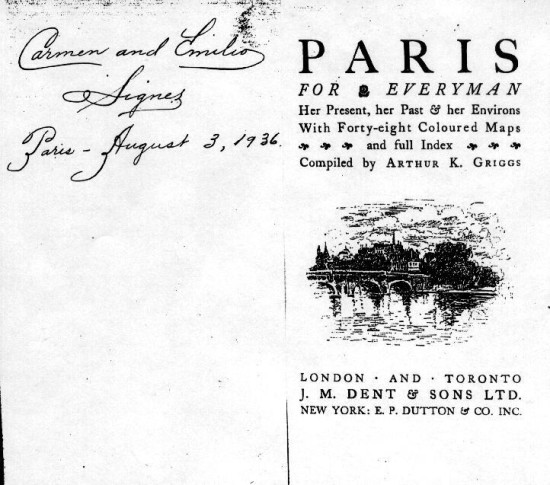 Carmen and Emilio
Signes
Paris - August 3, 1936.
PARIS
FOR EVERYMAN
Her Present, her Past & her Environs
With Forty-eight Coloured Maps
and full Index
Compiled by ARTHUR K. GRIGGS
LONDON · AND · TORONTO
J. M. DENT & SONS LTD.
NEW YORK: E. P. DUTTON & CO. INC.